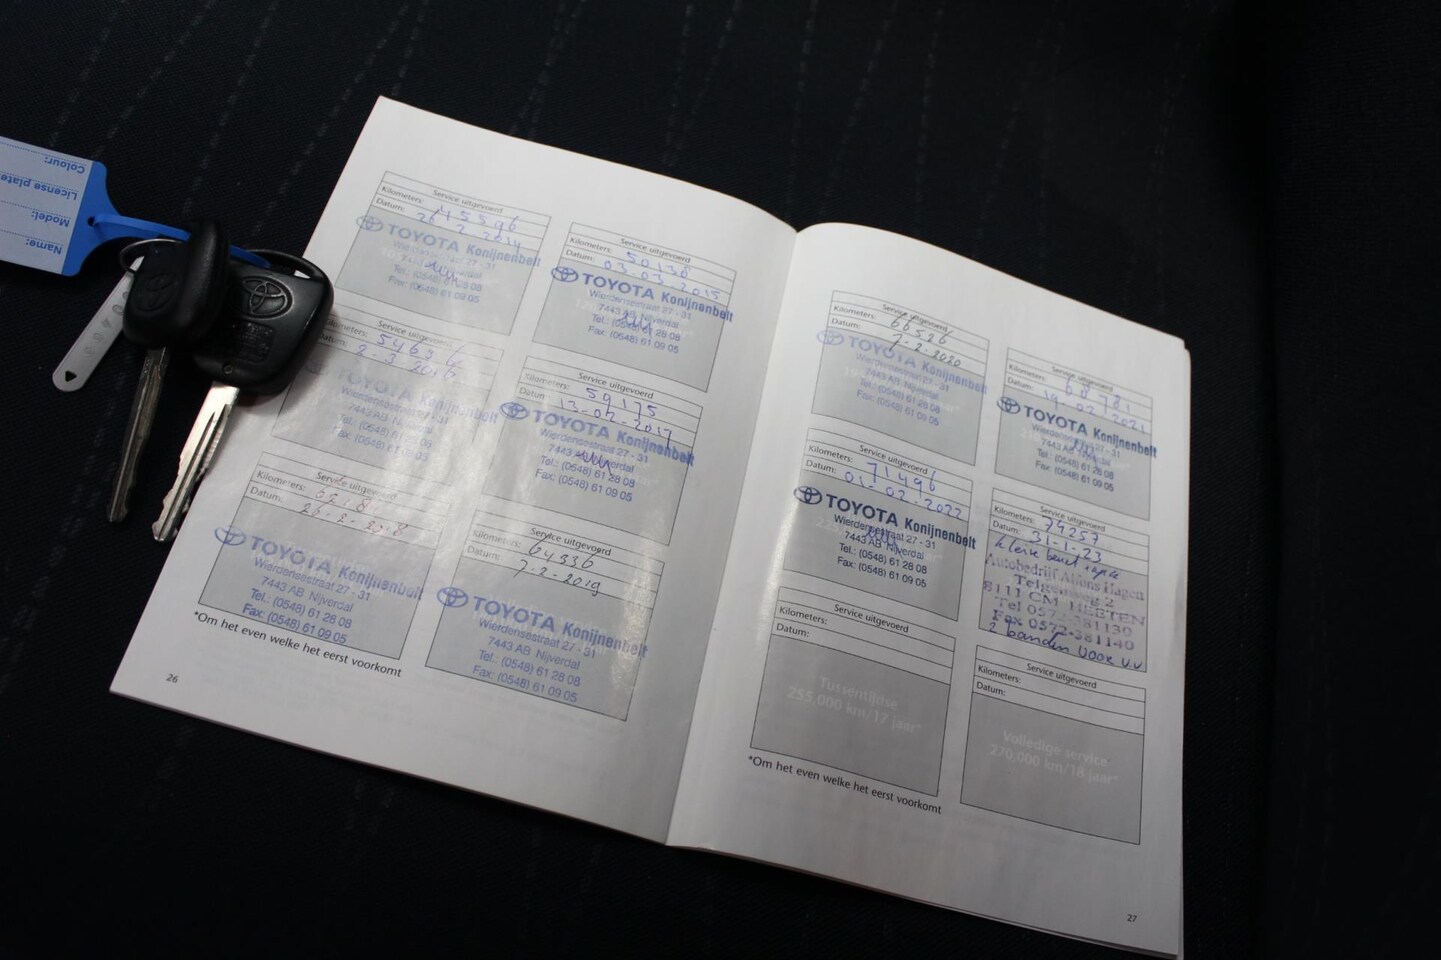 Colour:
License plate
Model:
Name:
Service uitgevoerd
Kilometers: 45596
Datum: 26-2-2014
TOYOTA Konijnenbelt
Wierdensestraat 27 - 31
Tel.: (0548) 61 28 08
Fax: (0548) 61 09 05
Service uitgevoerd
Kilometers: 50138
Datum: 03-03-2015
TOYOTA Konijnenbelt
Wierdensestraat 27 - 31
7443 AB Nijverdal
Tel.: (0548) 61 28 08
Fax: (0548) 61 09 05
Service uitgevoerd
Kilometers: 54636
Datum: 2-3-2016
TOYOTA Konijnenbelt
Wierdensestraat 27 - 31
7443 AB Nijverdal
Tel.: (0548) 61 28 08
Fax: (0548) 61 09 05
Service uitgevoerd
Kilometers: 59175
Datum: 13-02-2017
TOYOTA Konijnenbelt
Wierdensestraat 27 - 31
7443 AB Nijverdal
Tel.: (0548) 61 28 08
Fax: (0548) 61 09 05
Service uitgevoerd
Kilometers:
Datum: 26-2-2018
TOYOTA Konijnenbelt
Wierdensestraat 27 - 31
7443 AB Nijverdal
Tel.: (0548) 61 28 08
Fax: (0548) 61 09 05
Service uitgevoerd
Kilometers: 64336
Datum: 7-2-2019
TOYOTA Konijnenbelt
Wierdensestraat 27 - 31
7443 AB Nijverdal
Tel.: (0548) 61 28 08
Fax: (0548) 61 09 05
*Om het even welke het eerst voorkomt
26
Service uitgevoerd
Kilometers: 66526
Datum: 7-2-2020
TOYOTA Konijnenbelt
Wierdensestraat 27 - 31
7443 AB Nijverdal
Tel.: (0548) 61 28 08
Fax: (0548) 61 09 05
Service uitgevoerd
Kilometers: 68781
Datum: 19-02-2021
TOYOTA Konijnenbelt
Wierdensestraat 27 - 31
7443 AB Nijverdal
Tel.: (0548) 61 28 08
Fax: (0548) 61 09 05
Service uitgevoerd
Kilometers: 71496
Datum: 01-02-2022
TOYOTA Konijnenbelt
Wierdensestraat 27 - 31
7443 AB Nijverdal
Tel.: (0548) 61 28 08
Fax: (0548) 61 09 05
Service uitgevoerd
Kilometers: 74257
Datum: 31-1-23
kleine beurt + apk
Autobedrijf Alfons Hagen
Telgenweg 2
8111 CM HEETEN
Tel 0572-381130
Fax 0572-381140
2 banden voor v.v.
Service uitgevoerd
Kilometers:
Datum:
Tussentijdse
255.000 km/17 jaar*
Service uitgevoerd
Kilometers:
Datum:
Volledige service
270.000 km/18 jaar*
*Om het even welke het eerst voorkomt
27